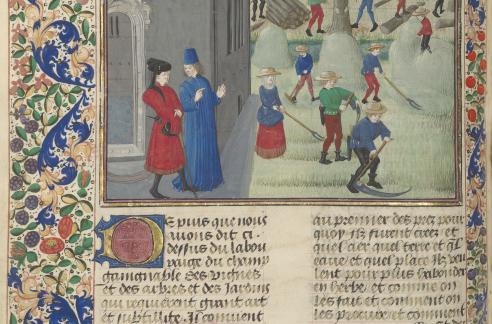 Depuis que nous
auions dit ci
dessus du labou
rage du champ
gaingnable des vignes
et des arbres et des Jardins
qui requierent grant art
et subtillite. Il conuient
au premier des prez pour
quoy ilz furent creez et
quel aier quel terre et qͥl
eaue et quel place ilz veu
lent pour plus habonder
en herbe et comme on
les fait et comment on
les procure et comment